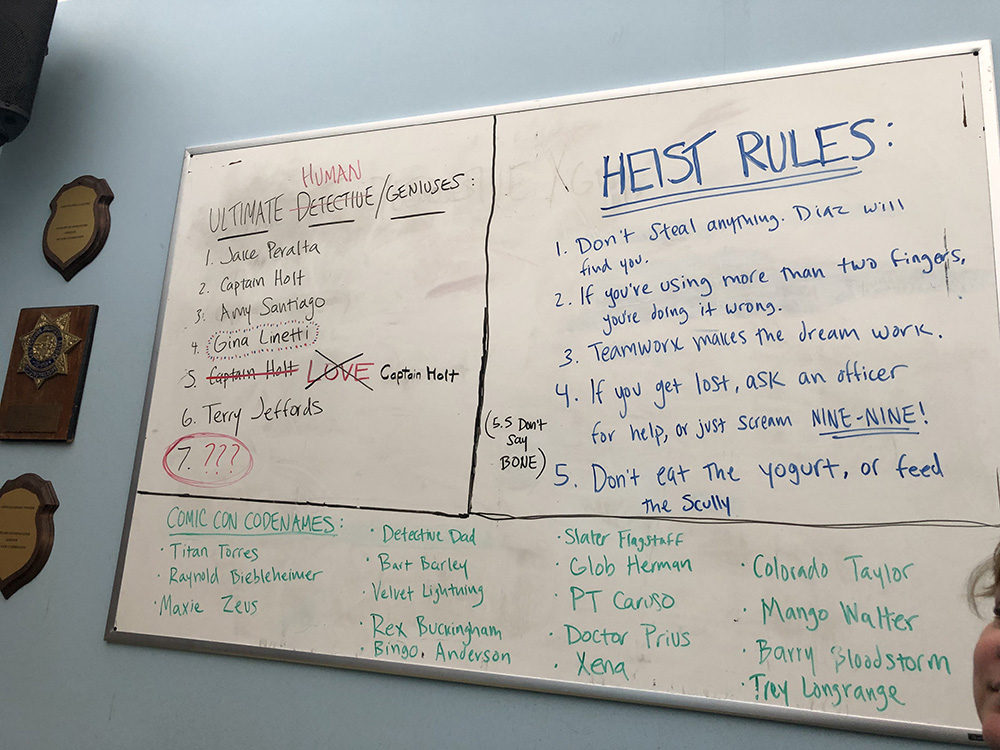 HUMAN
ULTIMATE DETECTIVE/GENIUSES:
1. Jake Peralta
2. Captain Holt
3. Amy Santiago
4. Gina Linetti
5. Captain Holt LOVE Captain Holt
6. Terry Jeffords
7. ???
HEIST RULES:
1. Don't steal anything. Diaz will
find you.
2. If you're using more than two fingers,
you're doing it wrong.
3. Teamworx makes the dream work.
4. If you get lost, ask an officer
for help, or just scream NINE-NINE!
(5.5 Don't
say
BONE)
5. Don't eat the yogurt, or feed
the Scully
COMIC CON CODENAMES:
· Titan Torres
· Raynold Biebleheimer
· Maxie Zeus
· Detective Dad
· Bart Barley
· Velvet Lightning
· Rex Buckingham
· Bingo Anderson
· Slater Flagstaff
· Glob Herman
· PT Caruso
· Doctor Prius
· Xena
· Colorado Taylor
· Mango Walter
· Barry Bloodstorm
· Trey Longrange